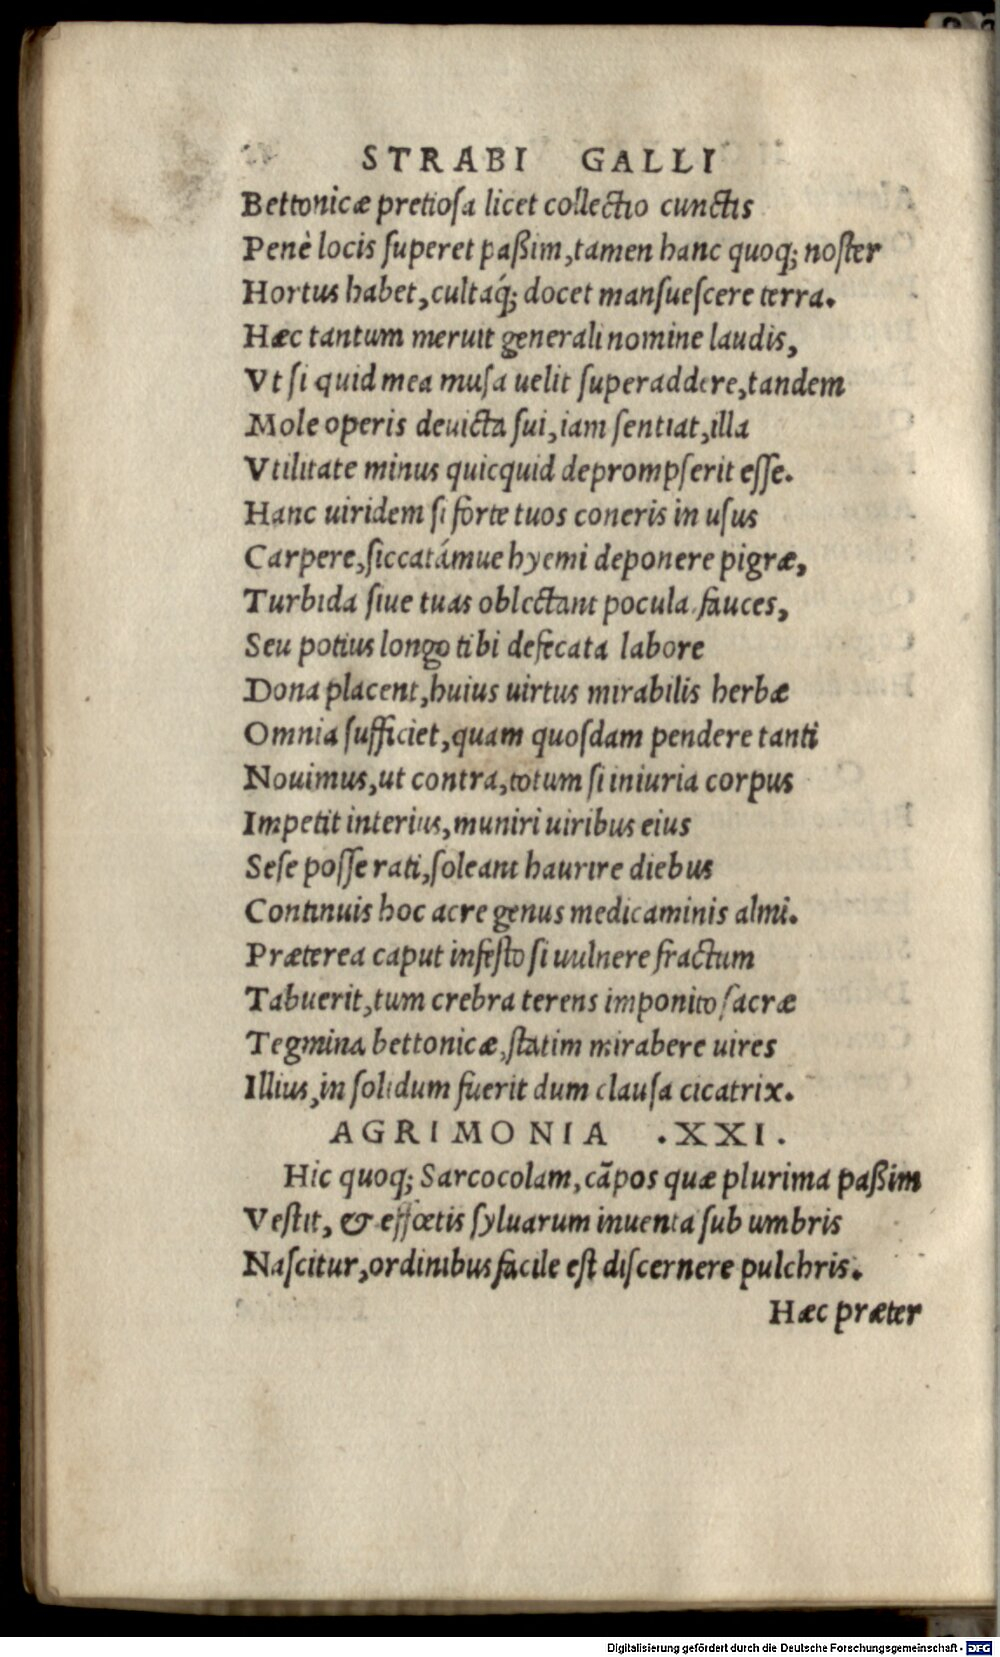 STRABI GALLI
Bettonicæ pretiosa licet collectio cunctis
Penè locis superet paßim, tamen hanc quoq; noster
Hortus habet, cultáq; docet mansuescere terra.
Hæc tantum meruit generali nomine laudis,
Vt si quid mea musa uelit superaddere, tandem
Mole operis deuicta sui, iam sentiat, illa
Vtilitate minus quicquid deprompserit esse.
Hanc uiridem si forte tuos coneris in usus
Carpere, siccatámue hyemi deponere pigræ,
Turbida siue tuas oblectant pocula fauces,
Seu potius longo tibi defecata labore
Dona placent, huius uirtus mirabilis herbæ
Omnia sufficiet, quam quosdam pendere tanti
Nouimus, ut contra, totum si iniuria corpus
Impetit interius, muniri uiribus eius
Sese posse rati, soleant haurire diebus
Continuis hoc acre genus medicaminis almi.
Præterea caput infesto si uulnere fractum
Tabuerit, tum crebra terens imponito sacræ
Tegmina bettonicæ, statim mirabere uires
Illius, in solidum fuerit dum clausa cicatrix.
AGRIMONIA .XXI.
Hic quoq; Sarcocolam, cãpos quæ plurima paßim
Vestit, & effœtis syluarum inuenta sub umbris
Nascitur, ordinibus facile est discernere pulchris.
Hæc præter
Digitalisierung gefördert durch die Deutsche Forschungsgemeinschaft - DFG